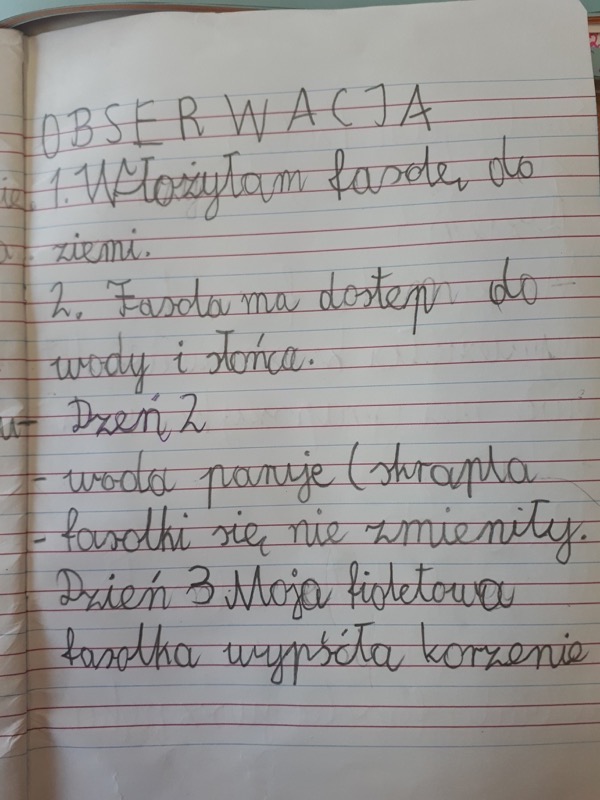 OBSERWACJA
1. Włożyłam fasolę do
ziemi.
2. Fasola ma dostęp do
wody i słońca.
Dzeń 2
- woda paruje (skrapla
- fasolki się nie zmieniły.
Dzień 3 Moja fioletowa
fasolka wypśćła korzenie